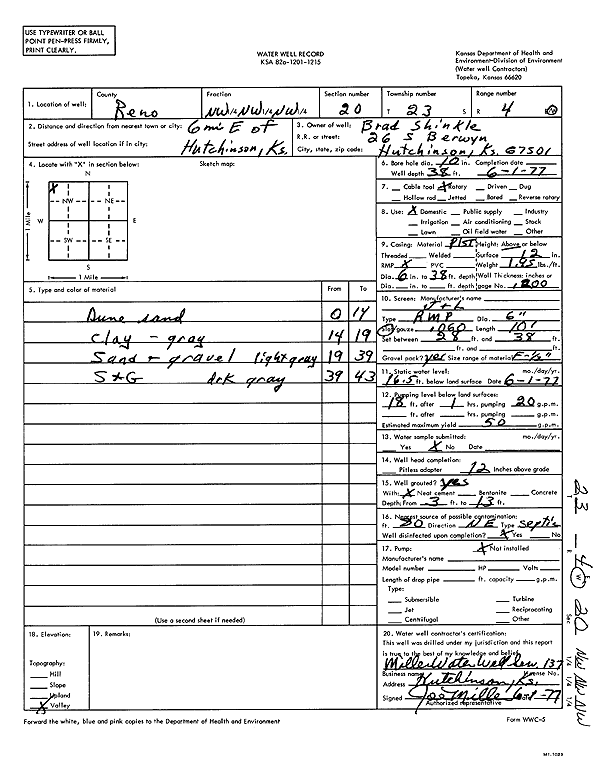 USE TYPEWRITER OR BALL
POINT PEN-PRESS FIRMLY,
PRINT CLEARLY.
WATER WELL RECORD
KSA 82a-1201-1215
Kansas Department of Health and
Environment-Division of Environment
(Water well Contractors)
Topeka, Kansas 66620
1. Location of well: County Reno Fraction NW 1/4 NW 1/4 NW 1/4 Section number 20 Township number T 23 S Range number R 4 E/W
2. Distance and direction from nearest town or city: 6 mi E of
Street address of well location if in city: Hutchinson, Ks.
3. Owner of well: Brad Shinkle
R.R. or street: 26 S Berwyn
City, state, zip code: Hutchinson, Ks. 67501
4. Locate with "X" in section below: Sketch map:
N
X
NW NE
1 Mile W E
SW SE
S
1 Mile
6. Bore hole dia. 10 in. Completion date
Well depth 38 ft. 6-1-77
7. Cable tool X Rotary Driven Dug
Hollow rod Jetted Bored Reverse rotary
8. Use: X Domestic Public supply Industry
Irrigation Air conditioning Stock
Lawn Oil field water Other
9. Casing: Material Plst Height: Above or below
Threaded Welded Surface 12 in.
RMP X PVC Weight 1.85 lbs./ft.
Dia. 6 in. to 38 ft. depth Wall Thickness: inches or
Dia. in. to ft. depth gage No. .200
5. Type and color of material From To
Dune sand 0 14
Clay - gray 14 19
Sand + gravel light gray 19 39
S+G drk gray 39 43
(Use a second sheet if needed)
10. Screen: Manufacturer's name
Type RMP Dia. 6"
Slot/gauze .060 Length 10'
Set between 28 ft. and 38 ft.
ft. and ft.
Gravel pack? yes Size range of material
11. Static water level: mo./day/yr.
16.5 ft. below land surface Date 6-1-77
12. Pumping level below land surfaces:
18 ft. after 1 hrs. pumping 20 g.p.m.
ft. after hrs. pumping g.p.m.
Estimated maximum yield 50 g.p.m.
13. Water sample submitted: mo./day/yr.
Yes X No Date
14. Well head completion:
Pitless adapter 12 Inches above grade
15. Well grouted? yes
With: X Neat cement Bentonite Concrete
Depth: From 3 ft. to 13 ft.
16. Nearest source of possible contamination:
ft. 80 Direction NE Type septic
Well disinfected upon completion? X Yes No
17. Pump: X Not installed
Manufacturer's name
Model number HP Volts
Length of drop pipe ft. capacity g.p.m.
Type:
Submersible Turbine
Jet Reciprocating
Centrifugal Other
18. Elevation:
Topography:
Hill
Slope
Upland
X Valley
19. Remarks:
20. Water well contractor's certification:
This well was drilled under my jurisdiction and this report
is true to the best of my knowledge and belief.
Miller Water Well Serv. 137
Business name License No.
Address Hutchinson, Ks.
Signed Joe Miller
Authorized representative
Forward the white, blue and pink copies to the Department of Health and Environment
Form WWC-5
T 23
R 4 W
Sec 20
NW NW NW
1/4 1/4 1/4